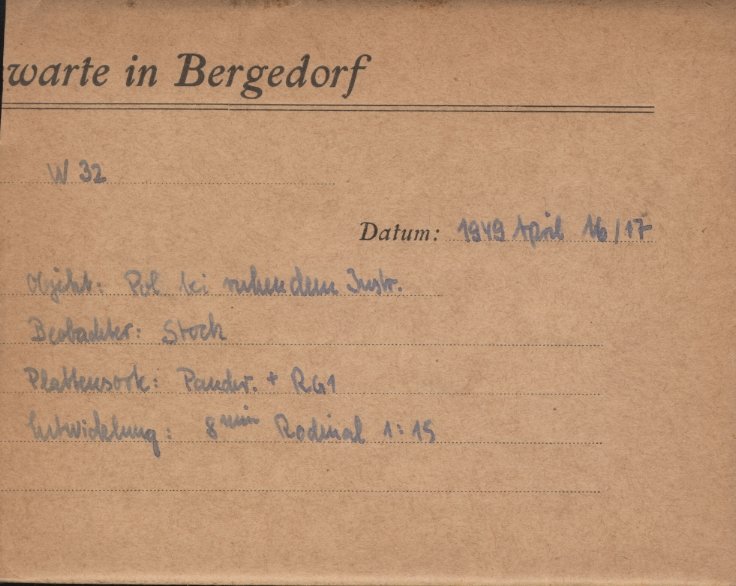 warte in Bergedorf
W 32
Datum: 1949 April 16/17
Objekt: Pol bei ruhendem Instr.
Beobachter: Stock
Plattensorte: Panchr. + RG1
Entwicklung: 8 min Rodinal 1:15